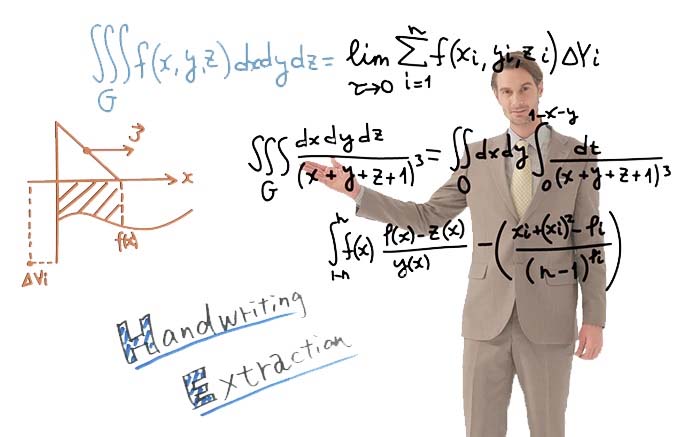 ∭_G f(x, y, z) dxdydz = lim_{τ→0} ∑_{i=1}^{n} f(xi, yi, zi) ΔVi
∭_G dxdydz/(x+y+z+1)³ = ∬_O dxdy ∫_0^{1-x-y} dt/(x+y+z+1)³
x
f(x)
ΔVi
f(x) (ρ(x)-z(x))/y(x) - ((xi+(xi)²-ρi)/(n-1)^{ρi})
Handwriting
Extraction